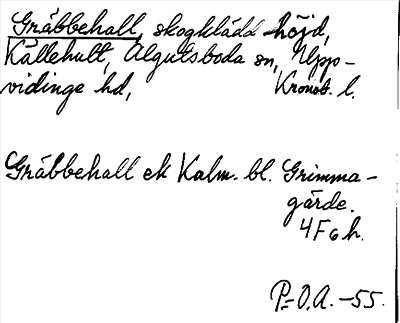 Gräbbehall, skogklädd höjd,
Källehult, Algutsboda sn, Uppvidinge hd, Kronob. l.
Gräbbehall ek Kalm. bl. Grimmagärde.
4F6h.
P-O.A. -55.